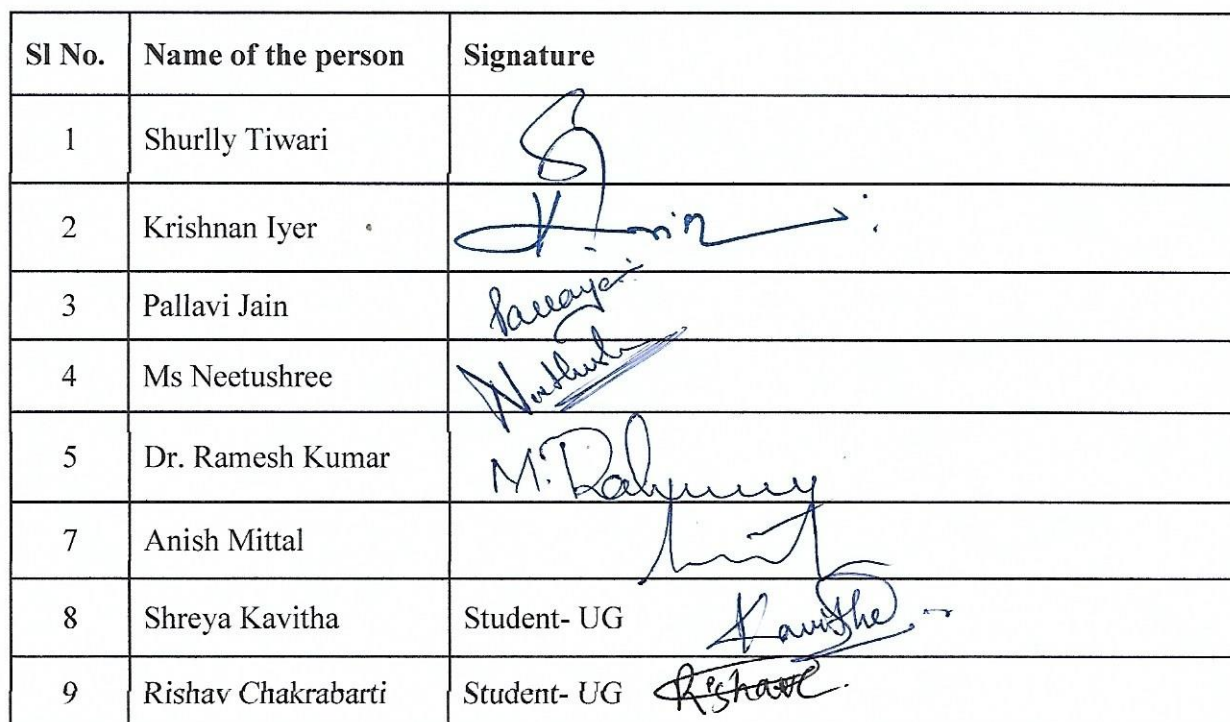 Sl No. Name of the person Signature
1 Shurlly Tiwari
2 Krishnan Iyer
3 Pallavi Jain
4 Ms Neetushree
5 Dr. Ramesh Kumar
7 Anish Mittal
8 Shreya Kavitha Student- UG Kavitha
9 Rishav Chakrabarti Student- UG Rishav